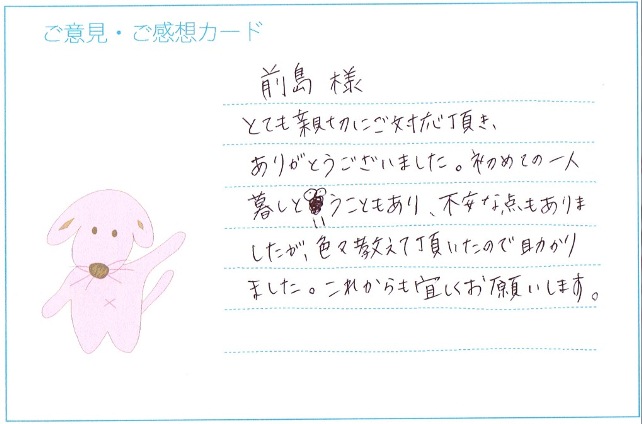 ご意見・ご感想カード
前島 様
とても親切にご対応頂き、
ありがとうございました。初めての一人
暮しというこどもあり、不安な点もありま
したが、色々教えて頂いたので助かり
ました。これからも宜しくお願いします。